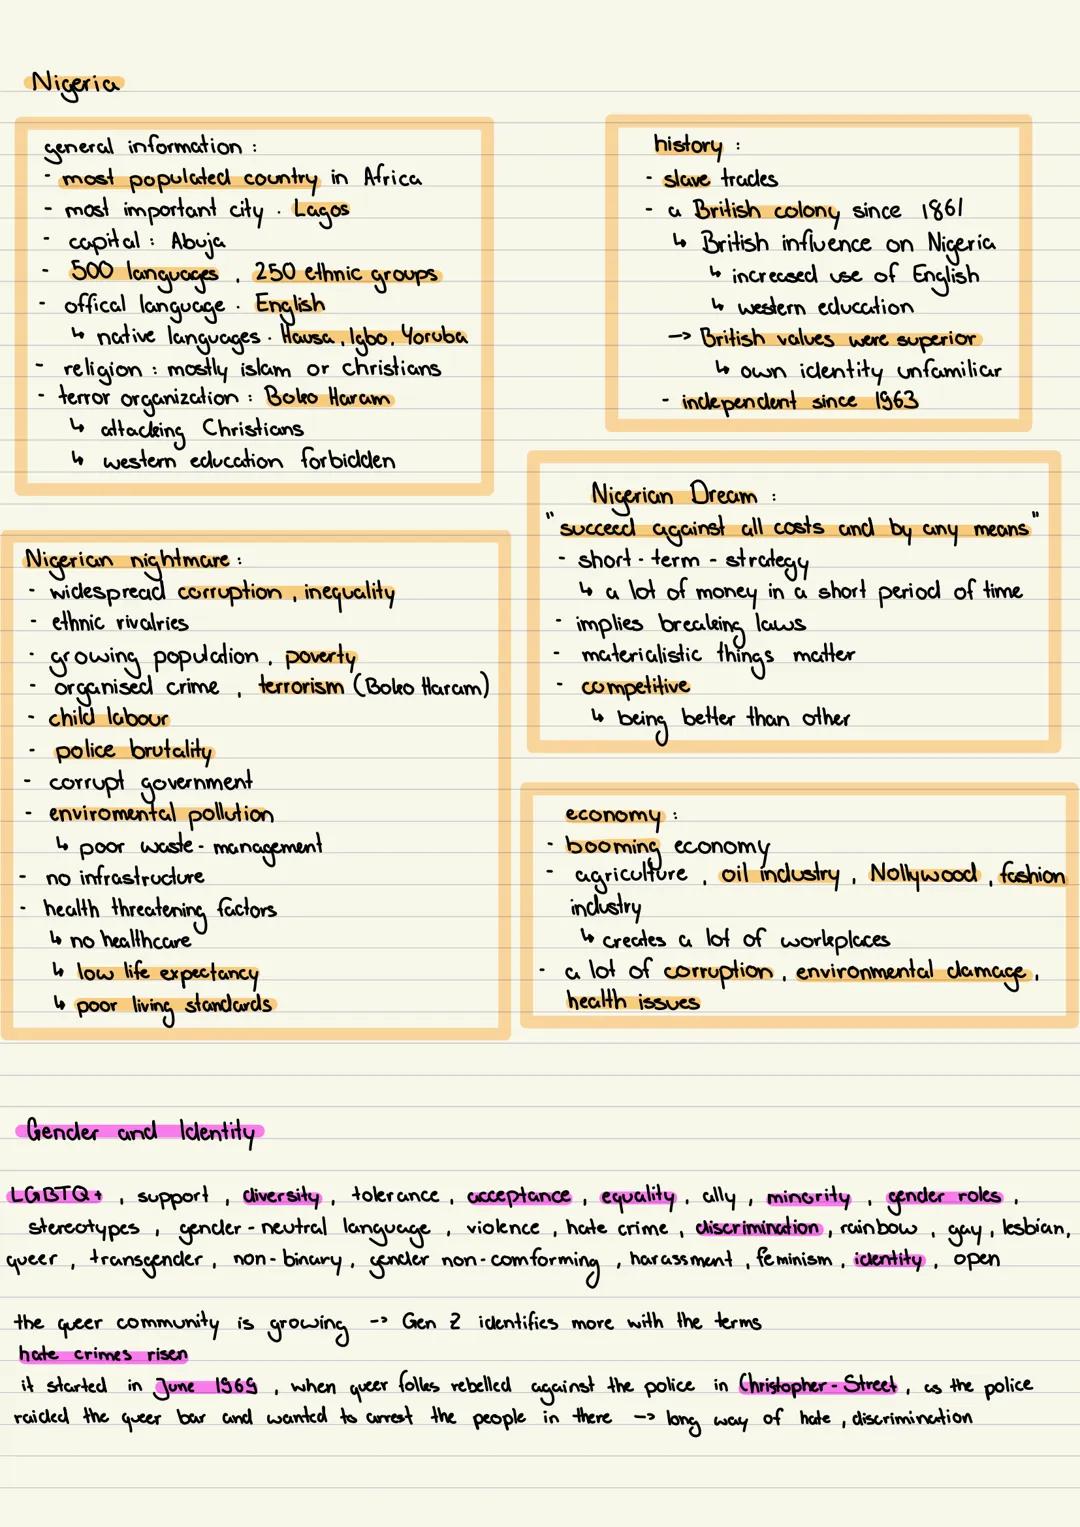 Nigeria
general information :
- most populated country in Africa
- most important city . Lagos
- capital : Abuja
- 500 languages , 250 ethnic groups
- offical language . English
↳ native languages . Hausa, Igbo, Yoruba
- religion : mostly islam or christians
- terror organization : Boko Haram
↳ attacking Christians
↳ western education forbidden
history :
- slave trades
- a British colony since 1861
↳ British influence on Nigeria
↳ increased use of English
↳ western education
-> British values were superior
↳ own identity unfamiliar
- independent since 1963
Nigerian Dream :
"succeed against all costs and by any means"
- short-term-strategy
↳ a lot of money in a short period of time
- implies breaking laws
- materialistic things matter
- competitive
↳ being better than other
Nigerian nightmare :
- widespread corruption , inequality
- ethnic rivalries
- growing population , poverty
- organised crime , terrorism (Boko Haram)
- child labour
- police brutality
- corrupt government
- enviromental pollution
↳ poor waste-management
- no infrastructure
- health threatening factors
↳ no healthcare
↳ low life expectancy
↳ poor living standards
economy :
- booming economy
- agriculture , oil industry , Nollywood , fashion
industry
↳ creates a lot of workplaces
- a lot of corruption , environmental damage ,
health issues
Gender and Identity
LGBTQ+ , support , diversity , tolerance , acceptance , equality , ally , minority , gender roles ,
stereotypes , gender-neutral language , violence , hate crime , discrimination , rainbow , gay , lesbian ,
queer , transgender , non-binary , gender non-comforming , harassment , feminism , identity , open
the queer community is growing -> Gen Z identifies more with the terms
hate crimes risen
it started in June 1969 , when queer folks rebelled against the police in Christopher-Street , as the police
raided the queer bar and wanted to arrest the people in there -> long way of hate , discrimination